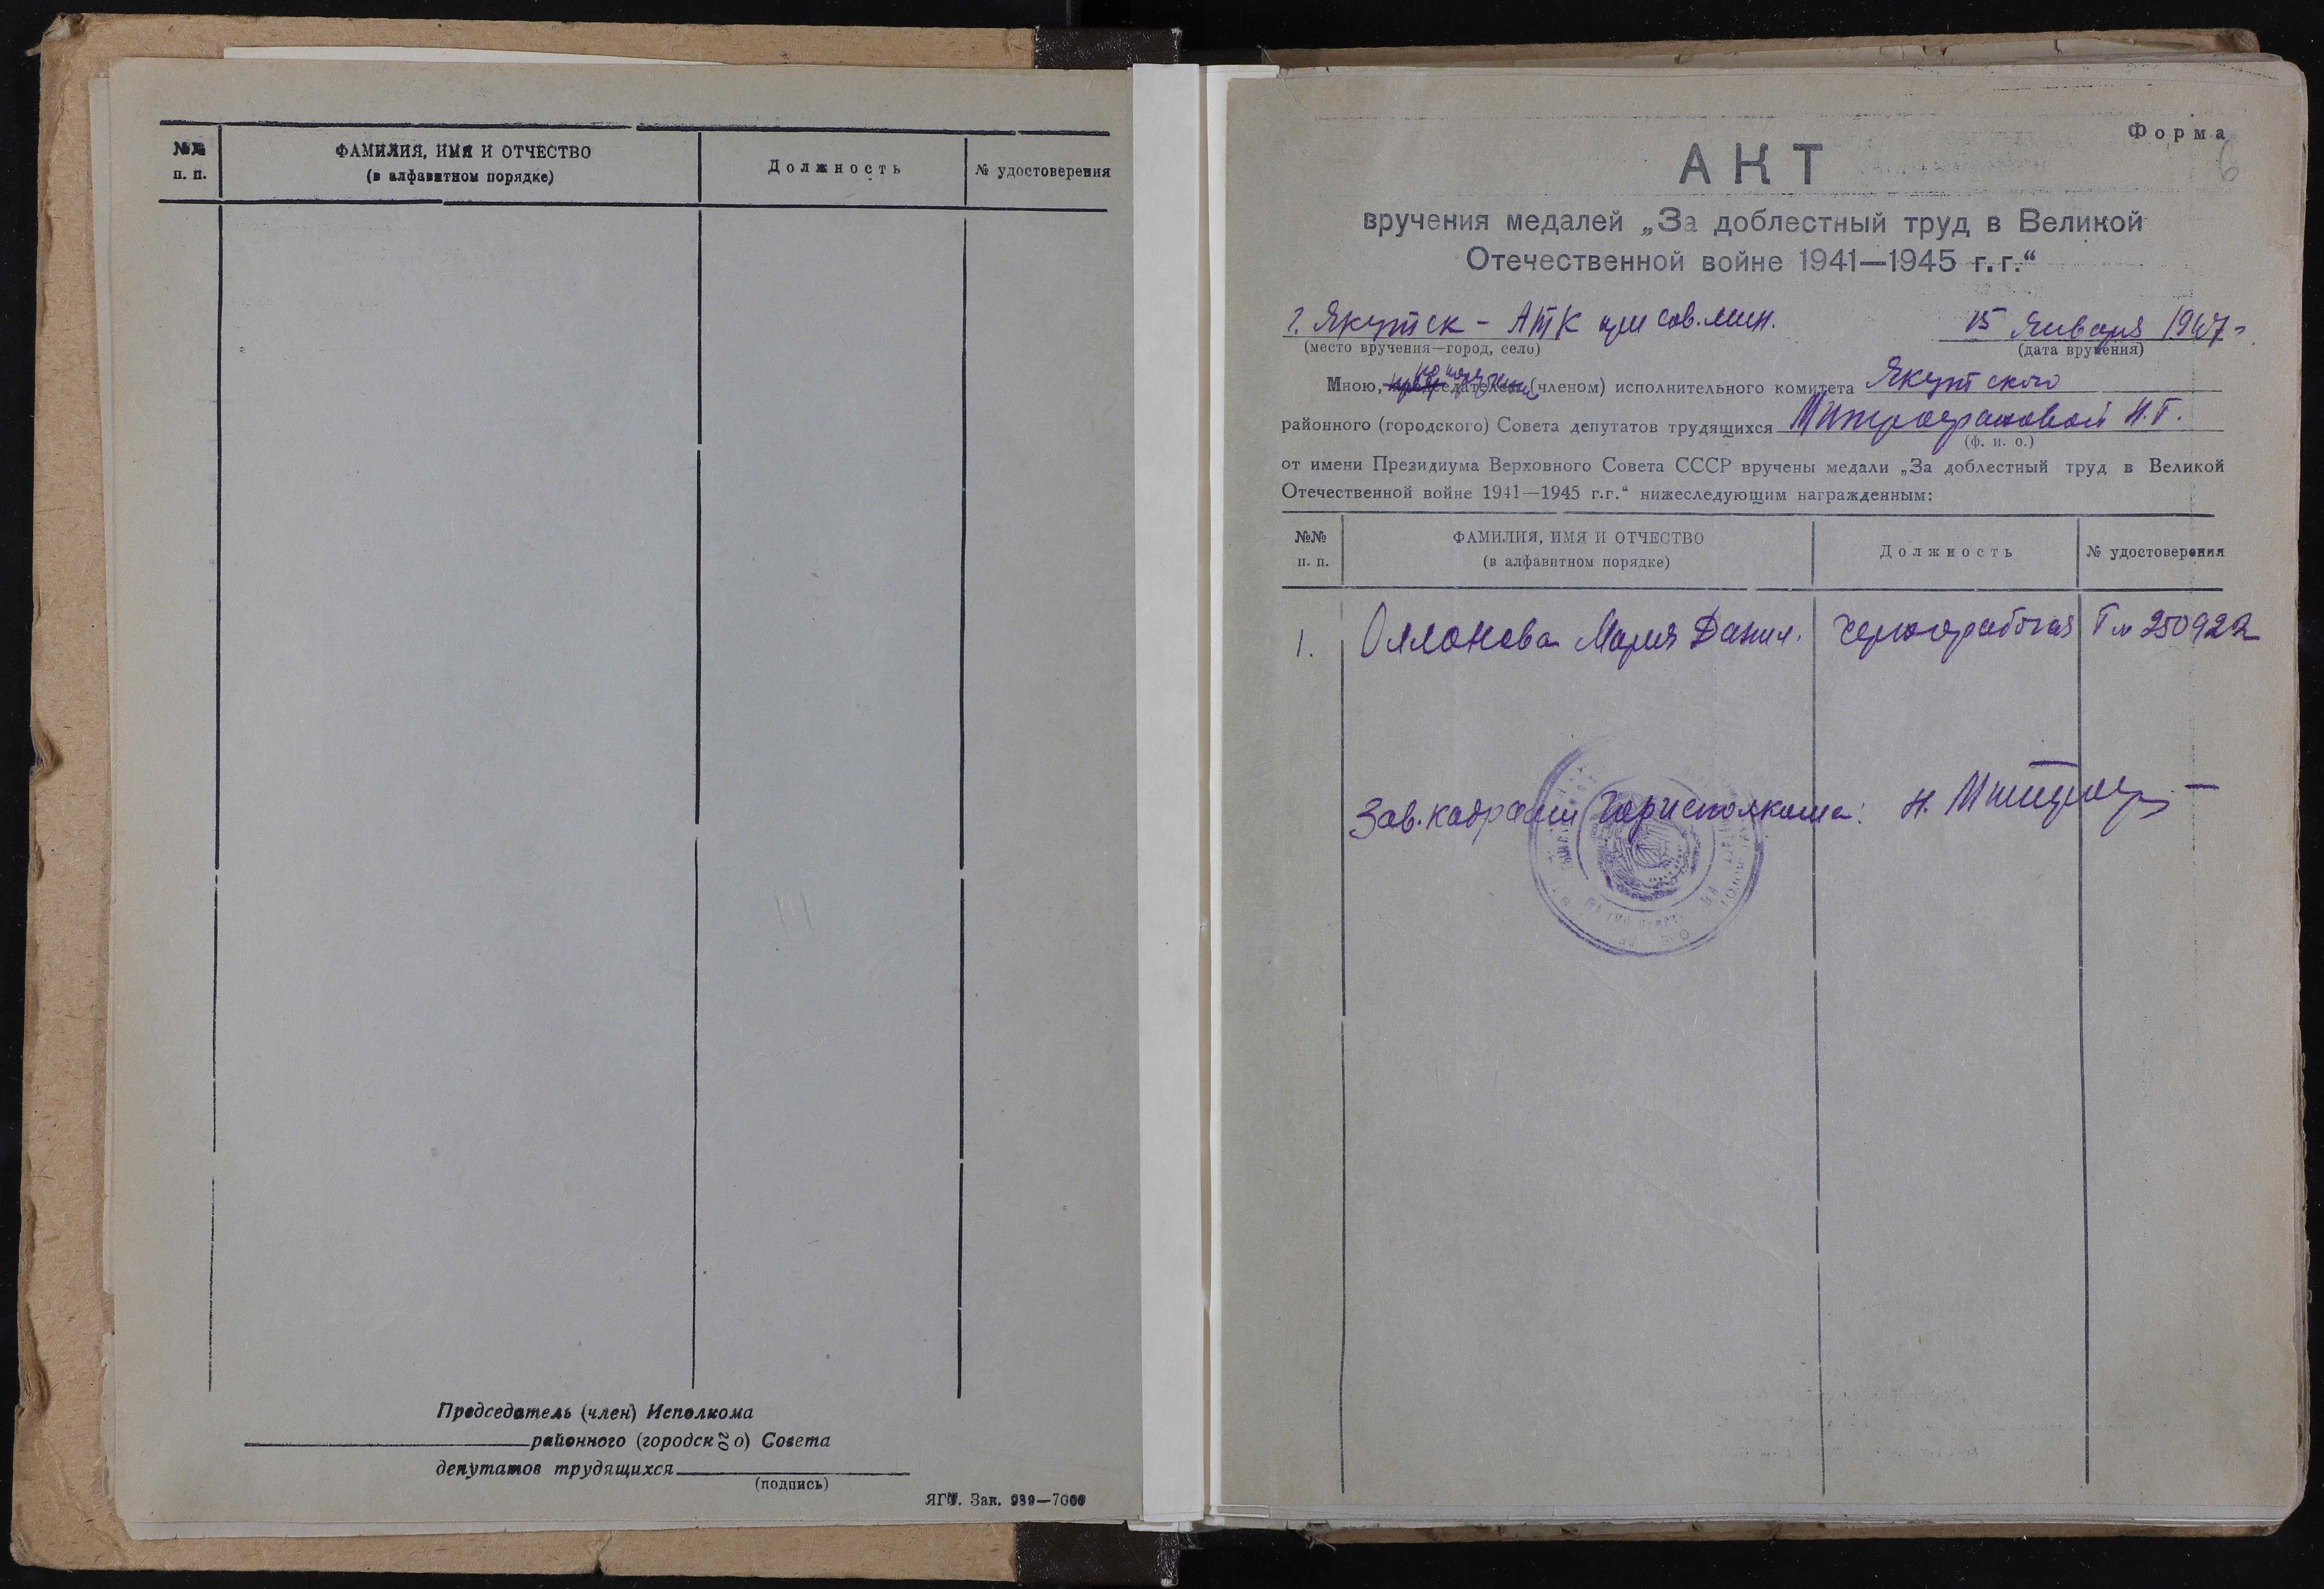 №№ п. п.
ФАМИЛИЯ, ИМЯ И ОТЧЕСТВО
(в алфавитном порядке)
Должность
№ удостоверения
Председатель (член) Исполкома
районного (городского) Совета
депутатов трудящихся
(подпись)
ЯГТ. Зак. 939—7000
Форма
6
АКТ
вручения медалей „За доблестный труд в Великой
Отечественной войне 1941—1945 г.г.“
г. Якутск - АТК при Сов. Мин. 15 Января 1947 г.
(место вручения—город, село) (дата вручения)
по поручению
Мною, председателем (членом) исполнительного комитета Якутского
районного (городского) Совета депутатов трудящихся Митрофановой Н.Г.
(ф. и. о.)
от имени Президиума Верховного Совета СССР вручены медали „За доблестный труд в Великой
Отечественной войне 1941—1945 г.г.“ нижеследующим награжденным:
№№ п. п.
ФАМИЛИЯ, ИМЯ И ОТЧЕСТВО
(в алфавитном порядке)
Должность
№ удостоверения
1. Оллонова Мария Данил. Чернорабочая Г № 250922
Зав. кадрами Горисполкома: Н. Митроф